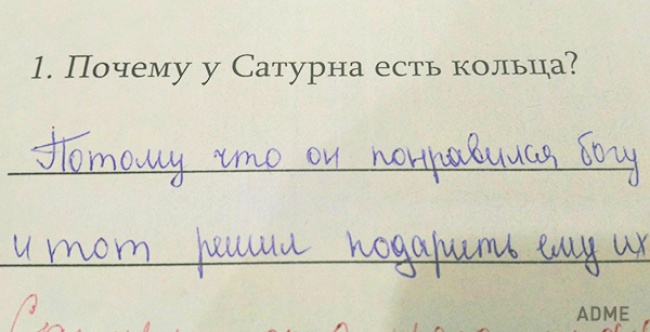 1. Почему у Сатурна есть кольца?
Потому что он понравился богу
и тот решил подарить ему их
ADME